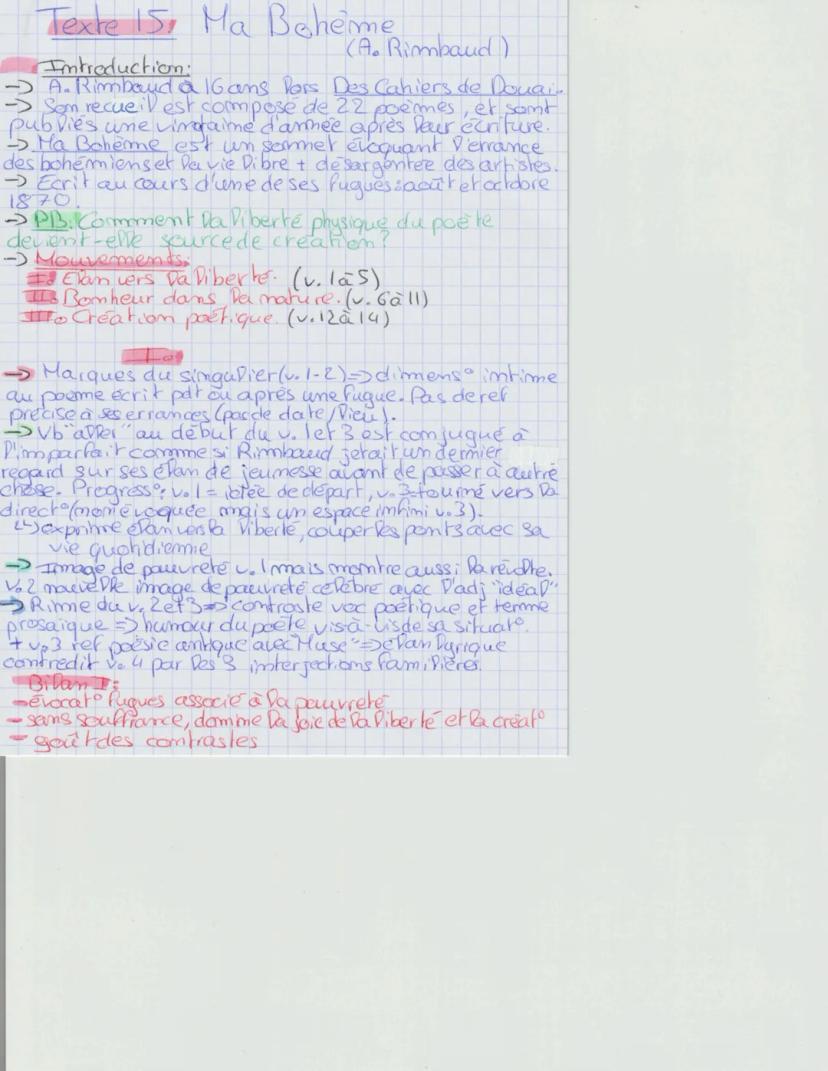 Texte 15: Ma Bohème
(A. Rimbaud)
Introduction:
-> A. Rimbaud a 16 ans lors Des Cahiers de Douai.
-> Son recueil est composé de 22 poèmes, et sont
publiés une vingtaine d'année après leur écriture.
-> Ma Bohème est un sonnet évoquant l'errance
des bohémiens et la vie libre + désargentée des artistes.
-> Ecrit au cours d'une de ses fugues: août et octobre
1870.
-> PB: Comment la liberté physique du poète
devient-elle source de création?
-> Mouvements:
I. Elan vers la liberté. (v. 1 à 5)
II. Bonheur dans la nature. (v. 6 à 11)
III. Création poétique. (v. 12 à 14)
I.
-> Marques du singulier (v. 1-2) => dimens° intime
au poème écrit pdt ou après une fugue. Pas de ref
précise à ses errances (pas de date/lieu).
-> Vb "aller" au début du v. 1 et 3 est conjugué à
l'imparfait comme si Rimbaud jetait un dernier
regard sur ses élan de jeunesse avant de passer à autre
chose. Progress°: v. 1 = idée de départ, v. 3 = tourné vers la
direct° (non évoquée mais un espace infini v. 3).
↳ exprime élan vers la liberté, couper les ponts avec sa
vie quotidienne
-> Image de pauvreté v. 1 mais montre aussi la révolte.
v. 2 nouvelle image de pauvreté célèbre avec l'adj "idéal"
-> Rime du v. 2 et 3 => contraste voc poétique et terme
prosaïque => humour du poète vis-à-vis de sa situat°.
+ v. 3 ref poésie antique avec "Muse" => élan lyrique
contredit v. 4 par les 3 interjections familières.
Bilan I:
- évocat° fugues associé à la pauvreté
- sans souffrance, domine la joie de la liberté et la créat°
- goût des contrastes